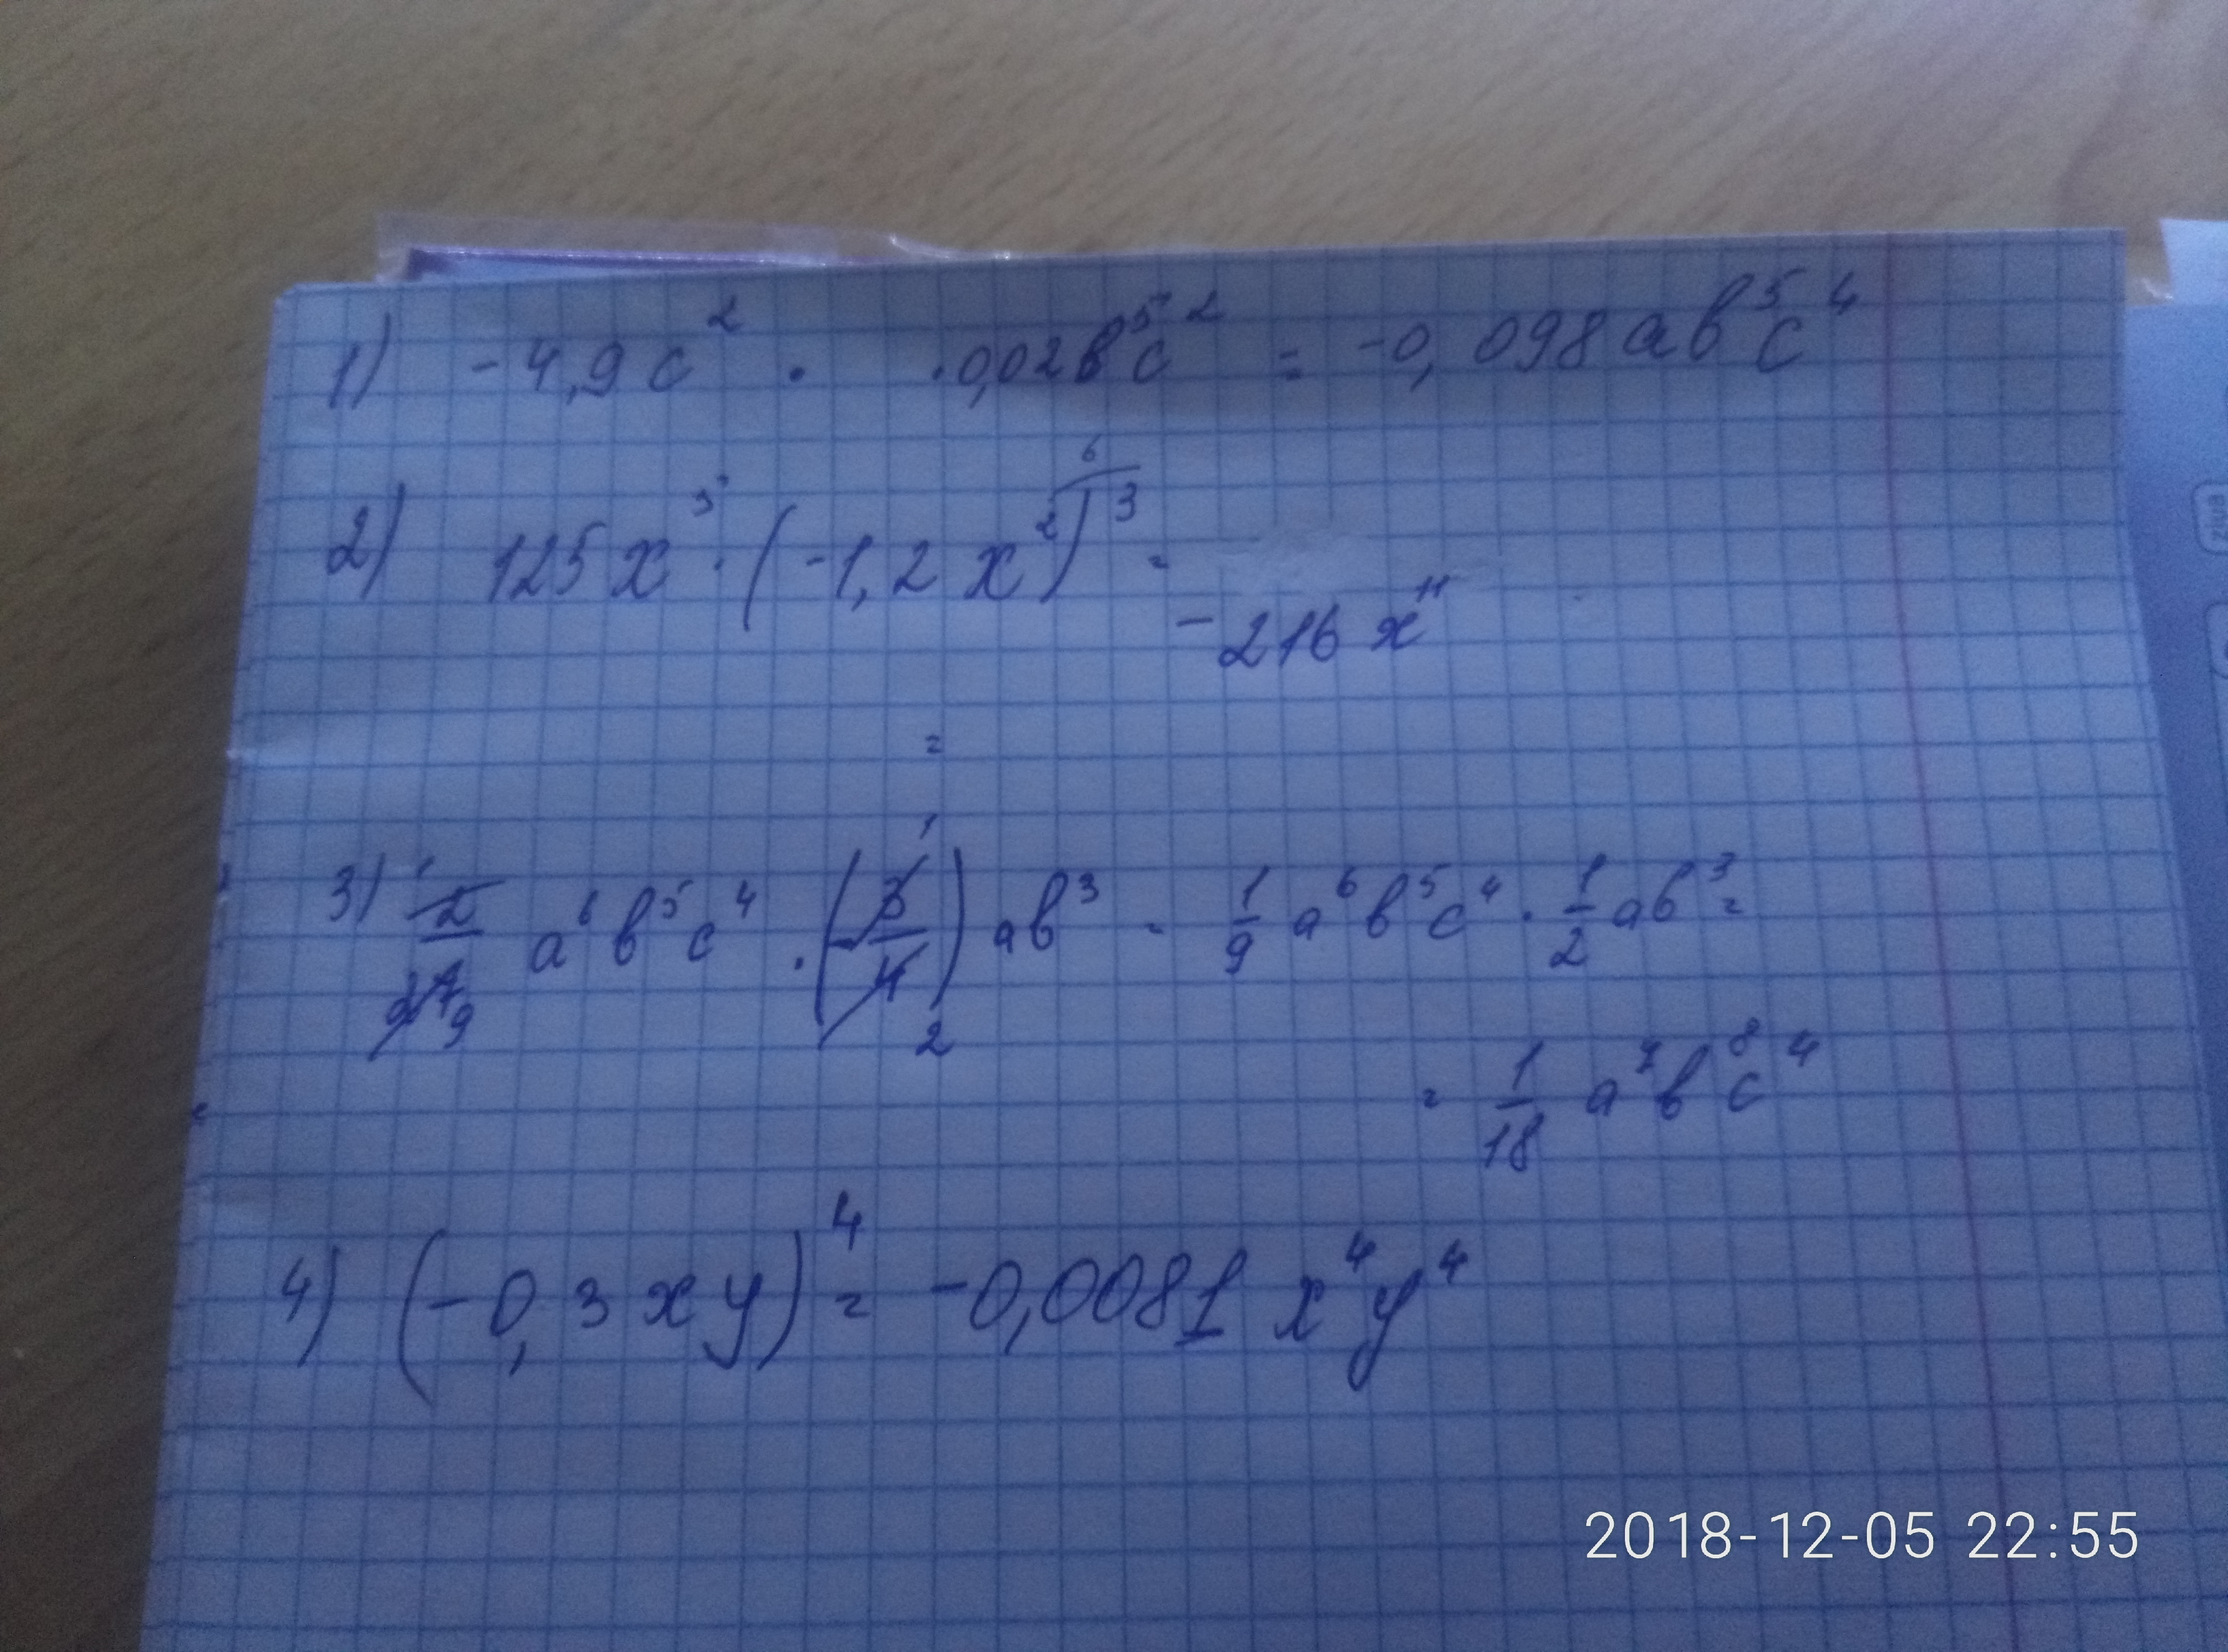 1) -4,9c² · ·0,02в⁵c² = -0,098aв⁵c⁴
2) 125x⁵·(-1,2x²)³ =
6
-216x¹¹
=
3) 2/27 a⁶в⁵c⁴ ·(-3/4) aв³ = 1/9 a⁶в⁵c⁴ · 1/2 aв³ =
1 9 1 2
= 1/18 a⁷в⁸c⁴
4) (-0,3xy)⁴ = -0,0081 x⁴y⁴
2018-12-05 22:55